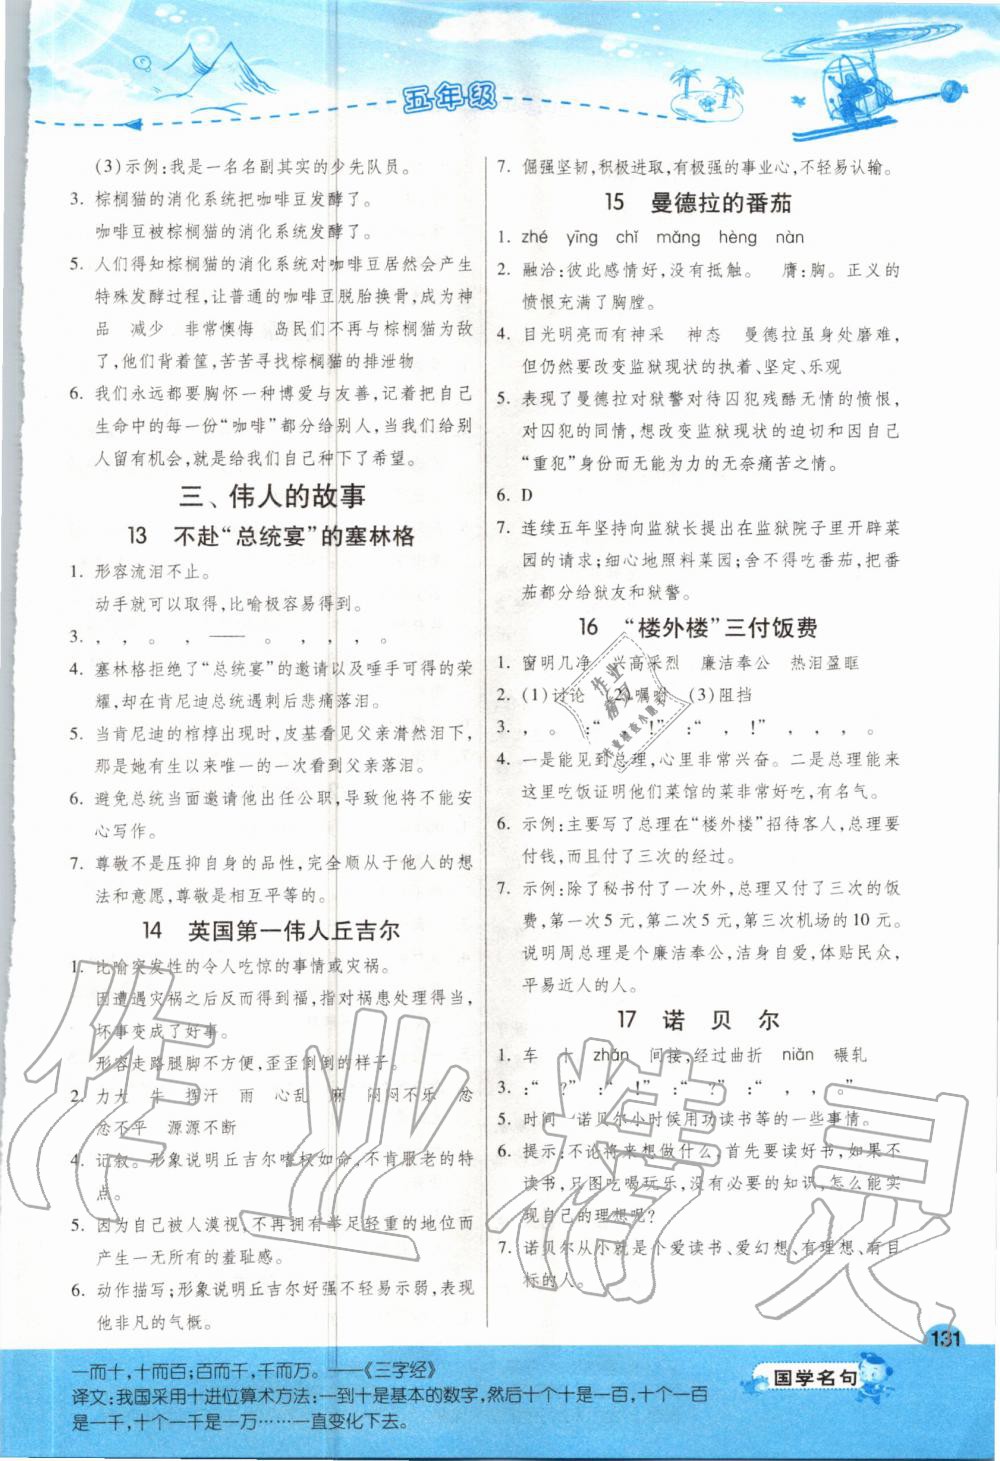 五年级
(3)示例:我是一名名副其实的少先队员。
3. 棕榈猫的消化系统把咖啡豆发酵了。
咖啡豆被棕榈猫的消化系统发酵了。
5. 人们得知棕榈猫的消化系统对咖啡豆居然会产生
特殊发酵过程,让普通的咖啡豆脱胎换骨,成为神
品　减少　非常懊悔　岛民们不再与棕榈猫为敌
了,他们背着筐,苦苦寻找棕榈猫的排泄物
6. 我们永远都要胸怀一种博爱与友善,记着把自己
生命中的每一份“咖啡”都分给别人,当我们给别
人留有机会,就是给我们自己种下了希望。
三、伟人的故事
13　不赴“总统宴”的塞林格
1. 形容流泪不止。
动手就可以取得,比喻极容易得到。
3. ,　,　。　,　——　。　,　,　,　。
4. 塞林格拒绝了“总统宴”的邀请以及唾手可得的荣
耀,却在肯尼迪总统遇刺后悲痛落泪。
5. 当肯尼迪的棺椁出现时,皮基看见父亲潸然泪下,
那是她有生以来唯一的一次看到父亲落泪。
6. 避免总统当面邀请他出任公职,导致他将不能安
心写作。
7. 尊敬不是压抑自身的品性,完全顺从于他人的想
法和意愿,尊敬是相互平等的。
14　英国第一伟人丘吉尔
1. 比喻突发性的令人吃惊的事情或灾祸。
因遭遇灾祸之后反而得到福,指对祸患处理得当,
坏事变成了好事。
形容走路腿脚不方便,歪歪倒倒的样子。
2. 力大　牛　挥汗　雨　心乱　麻　闷闷不乐　忿
忿不平　源源不断
4. 记叙。形象说明丘吉尔嗜权如命,不肯服老的特
点。
5. 因为自己被人漠视,不再拥有举足轻重的地位而
产生一无所有的羞耻感。
6. 动作描写;形象说明丘吉尔好强不轻易示弱,表现
他非凡的气概。
7. 倔强坚韧,积极进取,有极强的事业心,不轻易认输。
15　曼德拉的番茄
1. zhé　yīng　chǐ　mǎng　hèng　nàn
2. 融洽:彼此感情好,没有抵触。　膺:胸。正义的
愤恨充满了胸膛。
4. 目光明亮而有神采　神态　曼德拉虽身处磨难,
但仍然要改变监狱现状的执着、坚定、乐观
5. 表现了曼德拉对狱警对待囚犯残酷无情的愤恨,
对囚犯的同情,想改变监狱现状的迫切和自己因
“重犯”身份而无能为力的无奈痛苦之情。
6. D
7. 连续五年坚持向监狱长提出在监狱院子里开辟菜
园的请求;细心地照料菜园;舍不得吃番茄,把番
茄都分给狱友和狱警。
16　“楼外楼”三付饭费
1. 窗明几净　兴高采烈　廉洁奉公　热泪盈眶
2. (1)讨论　(2)嘱咐　(3)阻挡
3. ,　。　:“　,　!”　:“　,　!”　,　,　,　。
4. 一是能见到总理,心里非常兴奋。二是总理能来
这里吃饭证明他们的菜馆的菜非常好吃,有名气。
6. 示例:主要写了总理在“楼外楼”招待客人,总理要
付钱,而且付了三次的经过。
7. 示例:除了秘书付了一次外,总理又付了三次的饭
费,第一次5元,第二次5元,第三次机场的10元。
说明周总理是个廉洁奉公,洁身自爱,体贴民众,
平易近人的人。
17　诺贝尔
1. 车　十　zhǎn　间接,经过曲折　niǎn　碾轧
3. :“　?”　:“　,　!”　:“　?”　:“　,　,　。”
5. 时间　诺贝尔小时候用功读书等的一些事情。
6. 提示:不论将来想做什么,首先要读好书,如果不
读书,只图吃喝玩乐,没有必要的知识,怎么能实
现自己的理想呢?
7. 诺贝尔从小就是个爱读书、爱幻想、有理想、有目
标的人。
131
一而十,十而百;百而千,千而万。——《三字经》
译文:我国采用十进位算术方法:一到十是基本的数字,然后十个十是一百,十个一百
是一千,十个一千是一万……一直变化下去。
国学名句
作业精灵